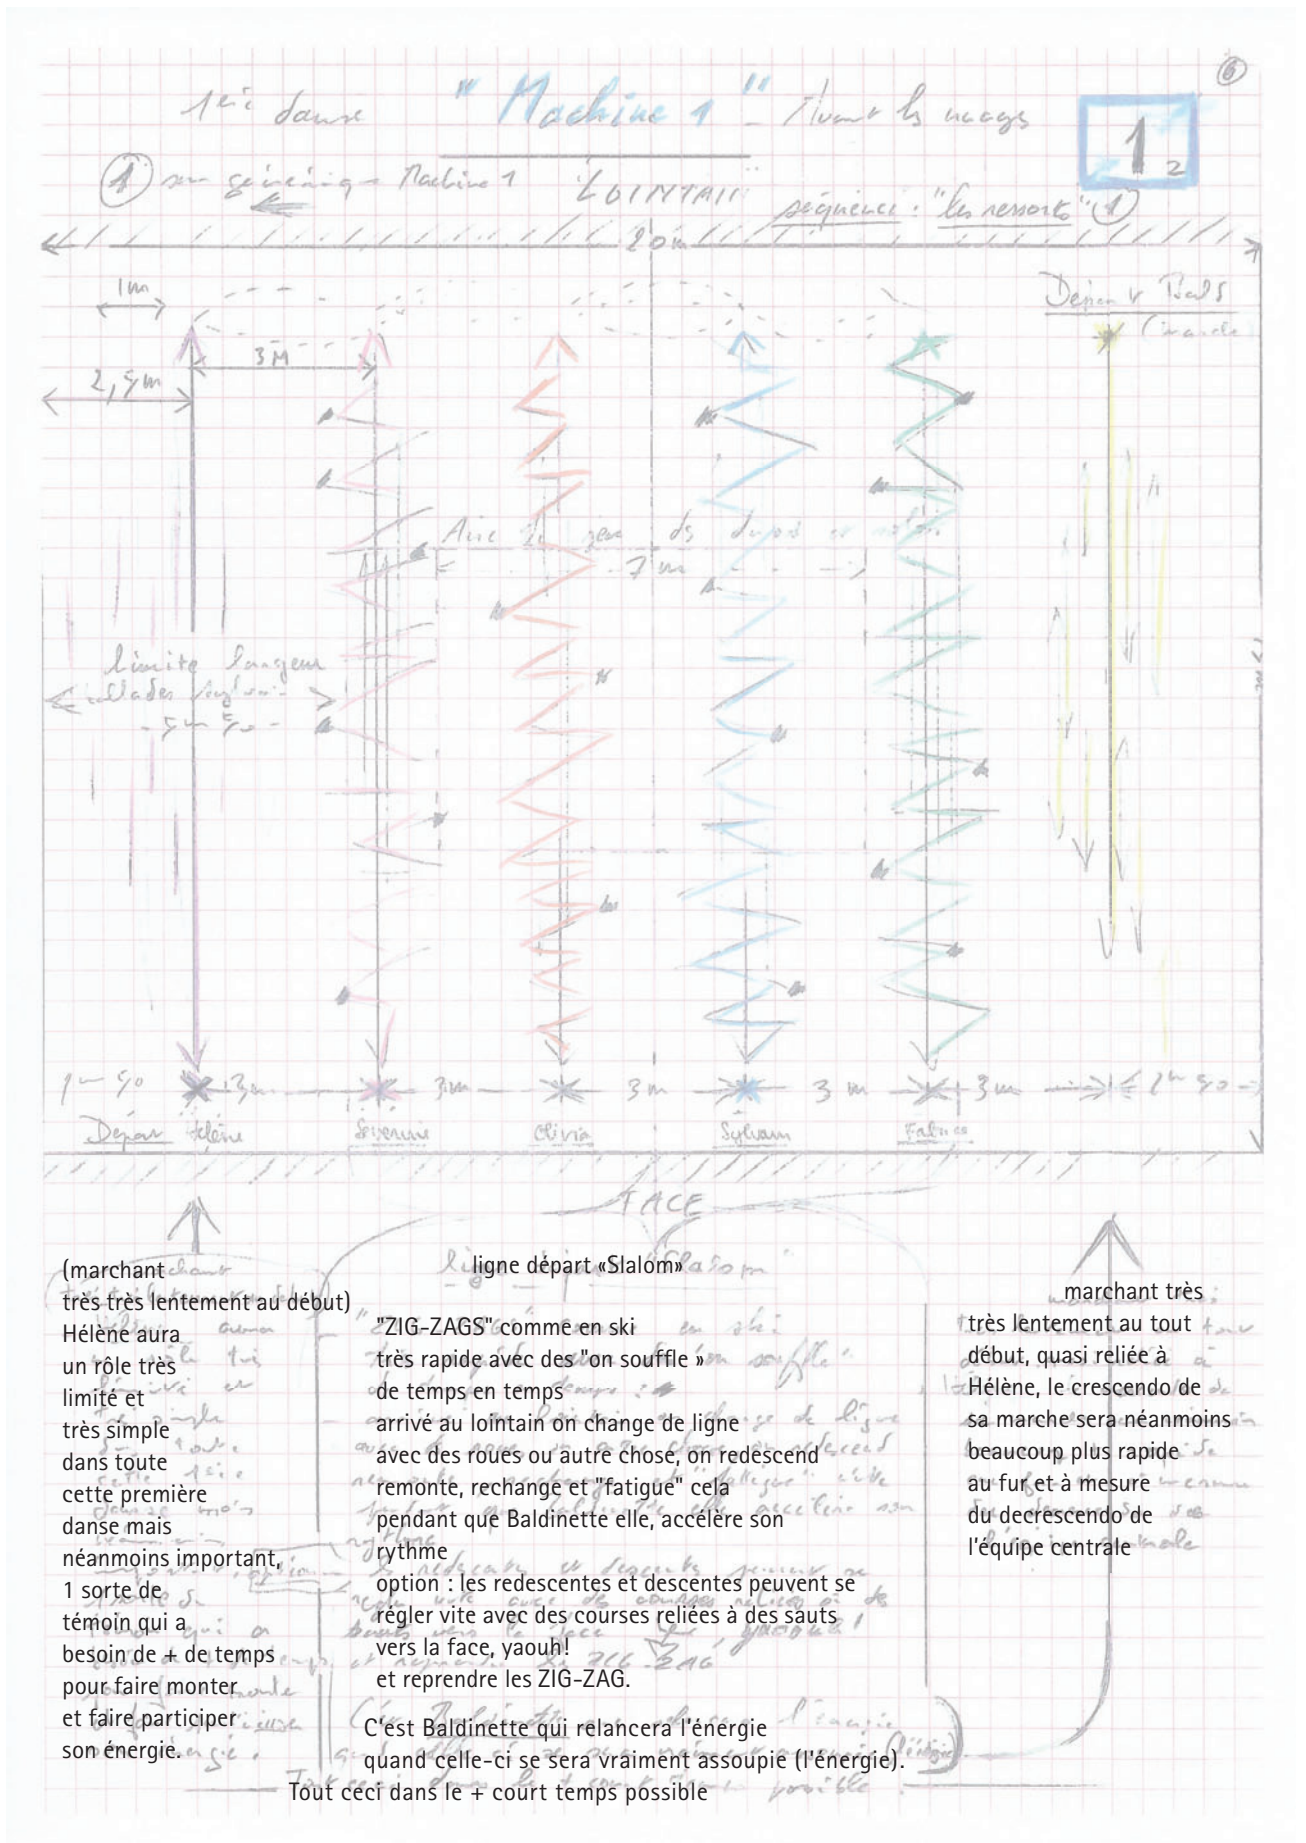 6
1ère danse "Machine 1" - Avant les nuages
1
2
1 sur générique Machine 1
LOINTAIN
séquence : "les ressorts" 1
20m
1m
Départ
3M
2,5m
Aire de jeu
7 m
limite largeur
5m 50
1m 50
3m
3m
3m
3 m
3m
1m 50
Départ Hélène
Séverine
Olivia
Sylvain
Fabrice
FACE
(marchant
très très lentement au début)
Hélène aura
un rôle très
limité et
très simple
dans toute
cette première
danse mais
néanmoins important,
1 sorte de
témoin qui a
besoin de + de temps
pour faire monter
et faire participer
son énergie.
ligne départ «Slalom»
"ZIG-ZAGS" comme en ski
très rapide avec des "on souffle »
de temps en temps
arrivé au lointain on change de ligne
avec des roues ou autre chose, on redescend
remonte, rechange et "fatigue" cela
pendant que Baldinette elle, accélère son
rythme
option : les redescentes et descentes peuvent se
régler vite avec des courses reliées à des sauts
vers la face, yaouh!
et reprendre les ZIG-ZAG.
C'est Baldinette qui relancera l'énergie
quand celle-ci se sera vraiment assoupie (l'énergie).
Tout ceci dans le + court temps possible
marchant très
très lentement au tout
début, quasi reliée à
Hélène, le crescendo de
sa marche sera néanmoins
beaucoup plus rapide
au fur et à mesure
du decrescendo de
l'équipe centrale